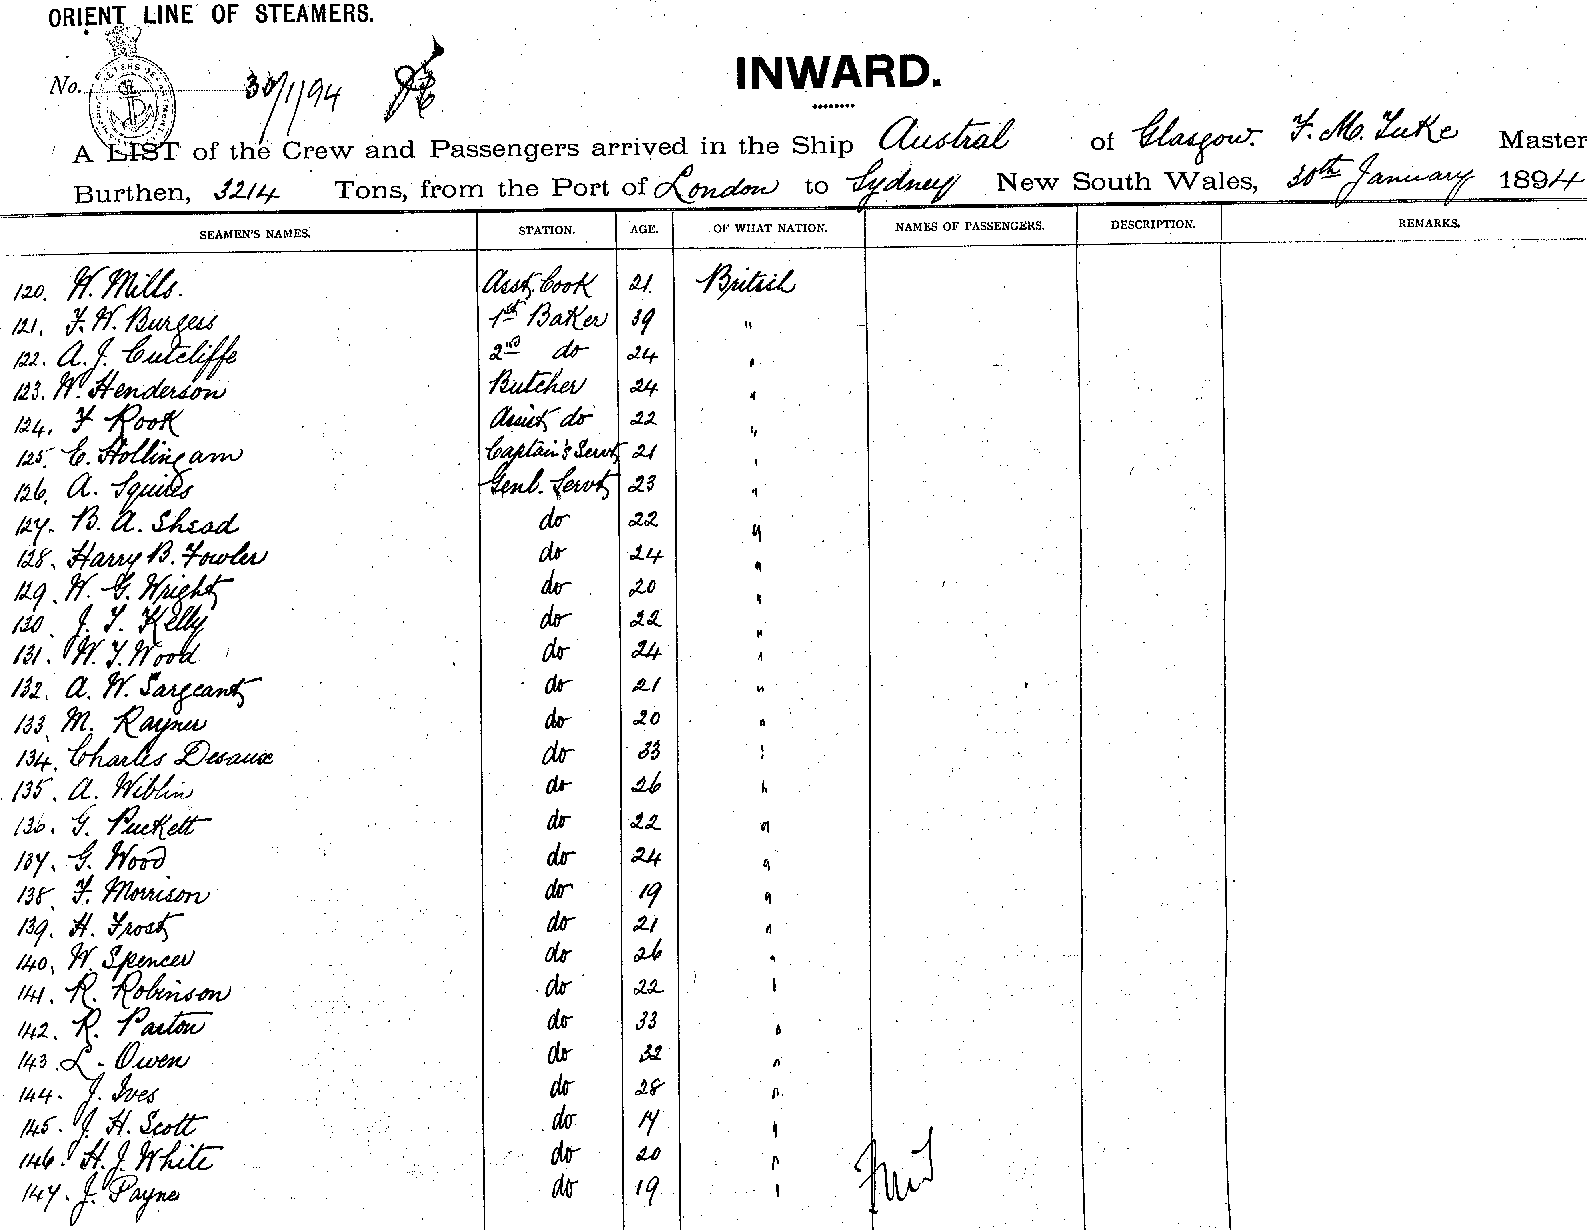 ORIENT LINE OF STEAMERS.
No. 30/1/94
INWARD.
A LIST of the Crew and Passengers arrived in the Ship Austral of Glasgow. F. M. Tuke Master
Burthen, 3214 Tons, from the Port of London to Sydney New South Wales, 30th January 1894
SEAMEN'S NAMES. STATION. AGE. OF WHAT NATION. NAMES OF PASSENGERS. DESCRIPTION. REMARKS.
120. W. Mills. Asst Cook 21. British
121. F. W. Burgess 1st Baker 39 "
122. A. J. Cutcliffe 2nd do 24 "
123. W. Henderson Butcher 24 "
124. F Rook Assist do 22 "
125. C. Hollingam Captain's Servt 21 "
126. A. Squires Genl. Servt 23 "
127. B. A. Shead do 22 "
128. Harry B. Fowler do 24 "
129. W. G. Wright do 20 "
130. J. T. Kelly do 22 "
131. W. T. Wood do 24 "
132. A. W. Sargeant do 21 "
133. M. Rayner do 20 "
134. Charles Desaux do 33 "
135. A. Wiblin do 26 "
136. G. Puckett do 22 "
137. G. Wood do 24 "
138. F. Morrison do 19 "
139. H. Frost do 21 "
140. W. Spencer do 26 "
141. R. Robinson do 22 "
142. R. Parton do 33 "
143. L. Owen do 32 "
144. J. Ives do 28 "
145. J. H. Scott do 17 "
146. H. J. White do 20 "
147. J. Payne do 19 "